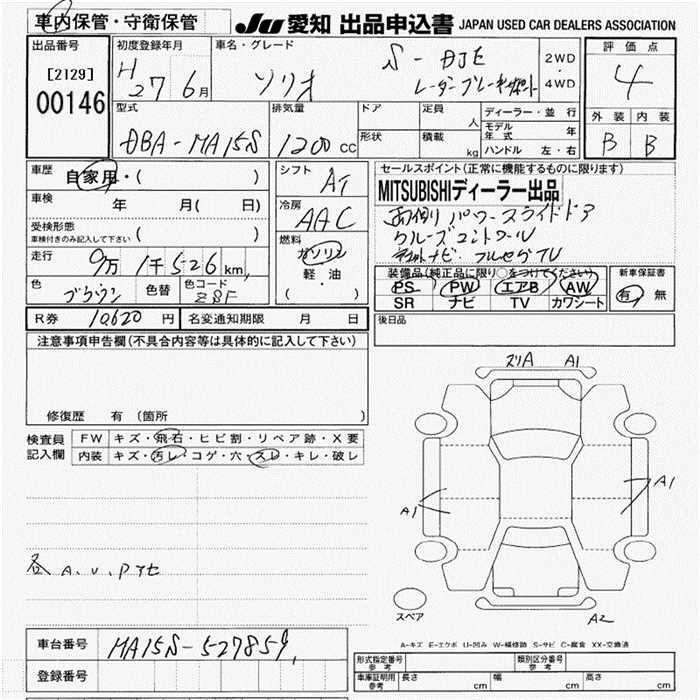 車内保管・守衛保管
JU 愛知 出品申込書 JAPAN USED CAR DEALERS ASSOCIATION
出品番号
[2129]
00146
初度登録年月
H27 6月
車名・グレード
ソリオ
S-DJE
レーダーブレーキサポート
2WD
・
4WD
評価点
4
外装 内装
B B
型式
DBA-MA15S
排気量
1200 cc
ドア
形状
定員
人
積載
kg
ディーラー・並行
モデル年式 年
ハンドル 左・右
車歴
自家用・( )
車検
年 月( 日)
受検形態
車検付きのみ記入して下さい ( )
走行
9万 1千 526 km
色
ブラウン
色替
色コード
ZSF
シフト
AT
冷房
AAC
燃料
ガソリン
軽・油
( )
セールスポイント(正常に機能するものに限ります)
MITSUBISHIディーラー出品
両側パワースライドドア
クルーズコントロール
ナビ フルセグTV
装備品(純正品に限り○をつけてください)
PS PW エアB AW
SR ナビ TV カワシート
新車保証書
有・無
R券 10620 円
名変通知期限 月 日
後日品
注意事項申告欄(不具合内容等は具体的に記入して下さい)
修復歴 有(箇所 )
検査員
記入欄
FW キズ・飛石・ヒビ割・リペア跡・X要
内装 キズ・汚レ・コゲ・穴・スレ・キレ・破レ
各 A.U.Pその
スリA A1
A1
A1
スペア
A2
A-キズ E-エクボ U-凹み W-補修跡 S-サビ C-腐食 XX-交換済
車台番号 MA15S-527859
登録番号
形式指定番号
参考
類別区分番号
参考
車庫証明用
参考
長さ cm 幅 cm 高さ cm